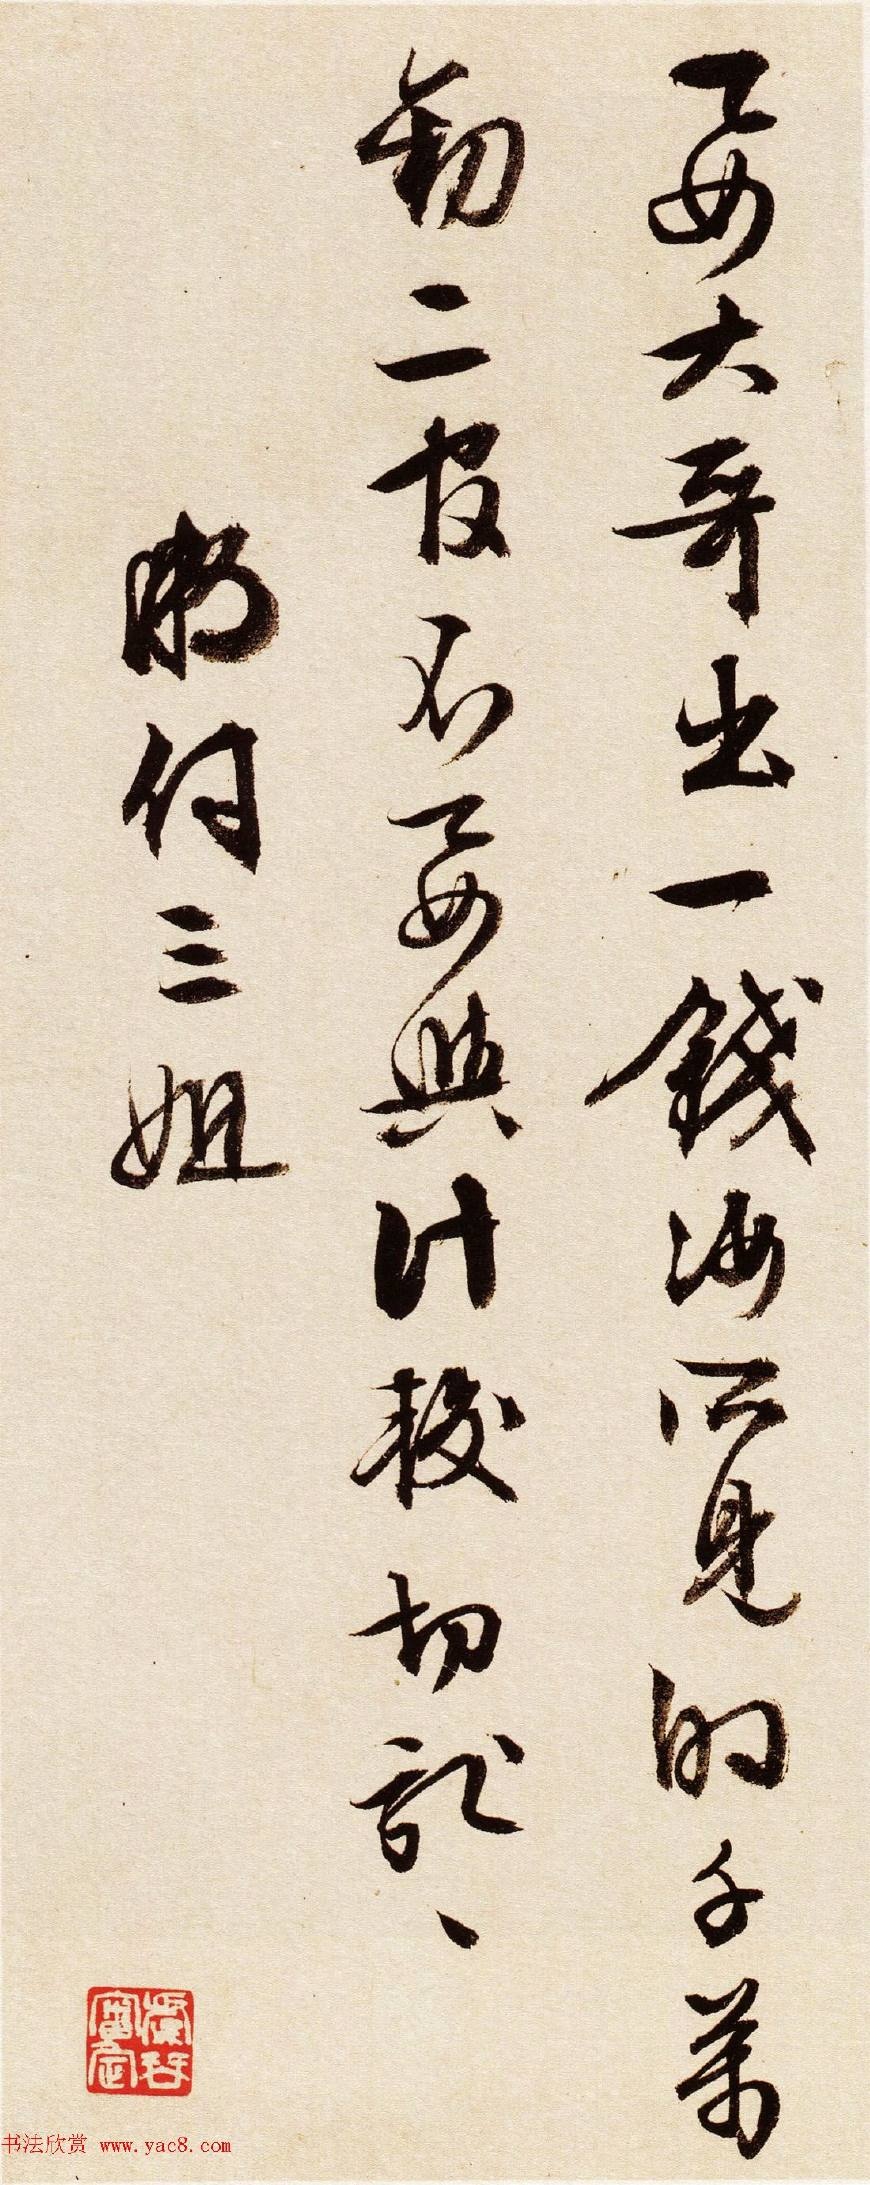 要大哥出一錢汝所見的千萬
勸二官不要與計較切記、
付三姐
书法欣赏 www.yac8.com